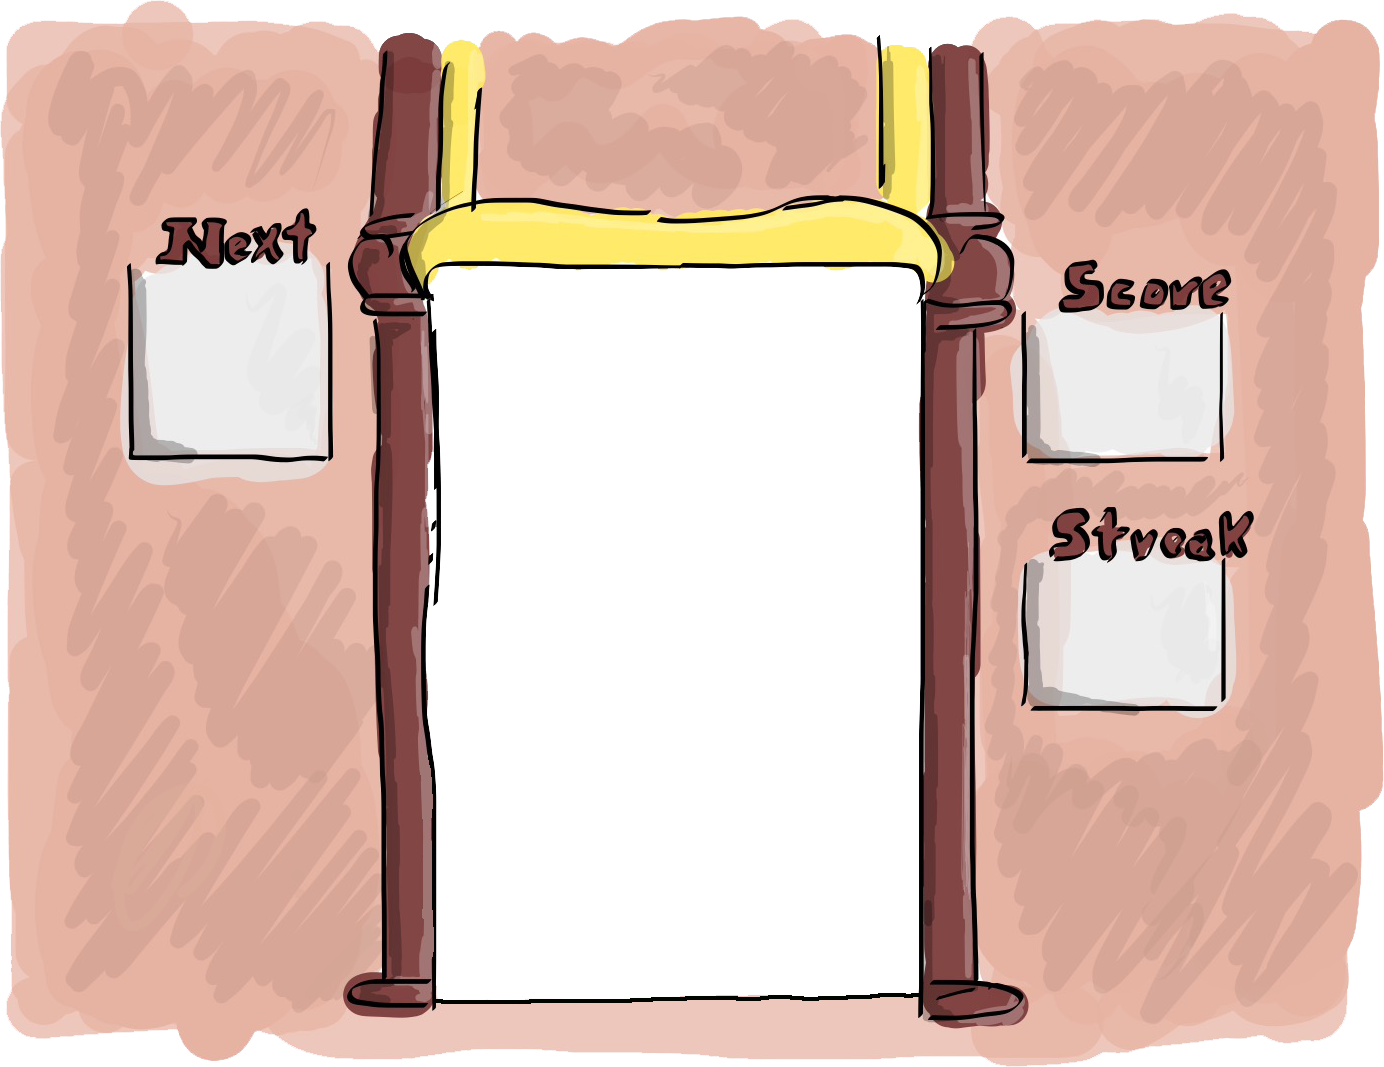 Next
Score
Streak